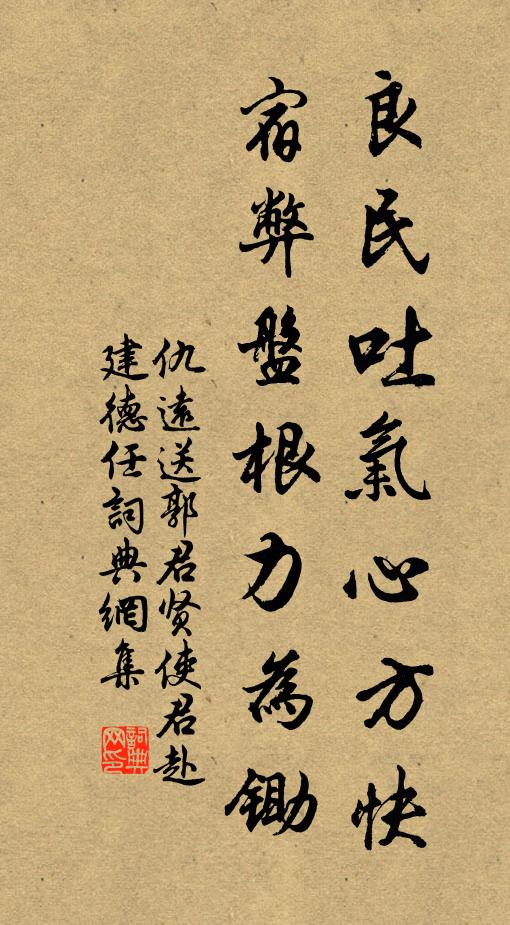 良民吐氣心方快
宿弊盤根力為鋤
仇遠送郭君贤使君赴
建德任詞典網集
詞典网印